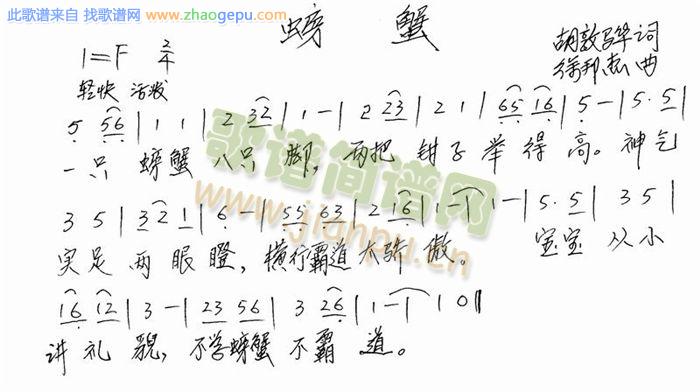 此歌谱来自 找歌谱网 www.zhaogepu.com
螃蟹
1=F 2/4
胡敦骅词
徐邦杰曲
轻快 活泼
5 56 | 1 1 | 2 32 | 1 - | 2 23 | 2 1 | 65 16 | 5 - | 5. 5 |
一只 螃蟹 八只 脚, 两把 钳子 举得高。神气
3 5 | 32 1 | 6 - | 55 63 | 2 16 | 1 - | 1 - | 5. 5 | 3 5 |
实足 两眼瞪, 横行霸道太骄傲。 宝宝 从小
16 12 | 3 - | 23 56 | 3 26 | 1 - | 1 0 ‖
讲礼貌, 不学螃蟹不霸道。
歌谱简谱网
www.jianpu.cn